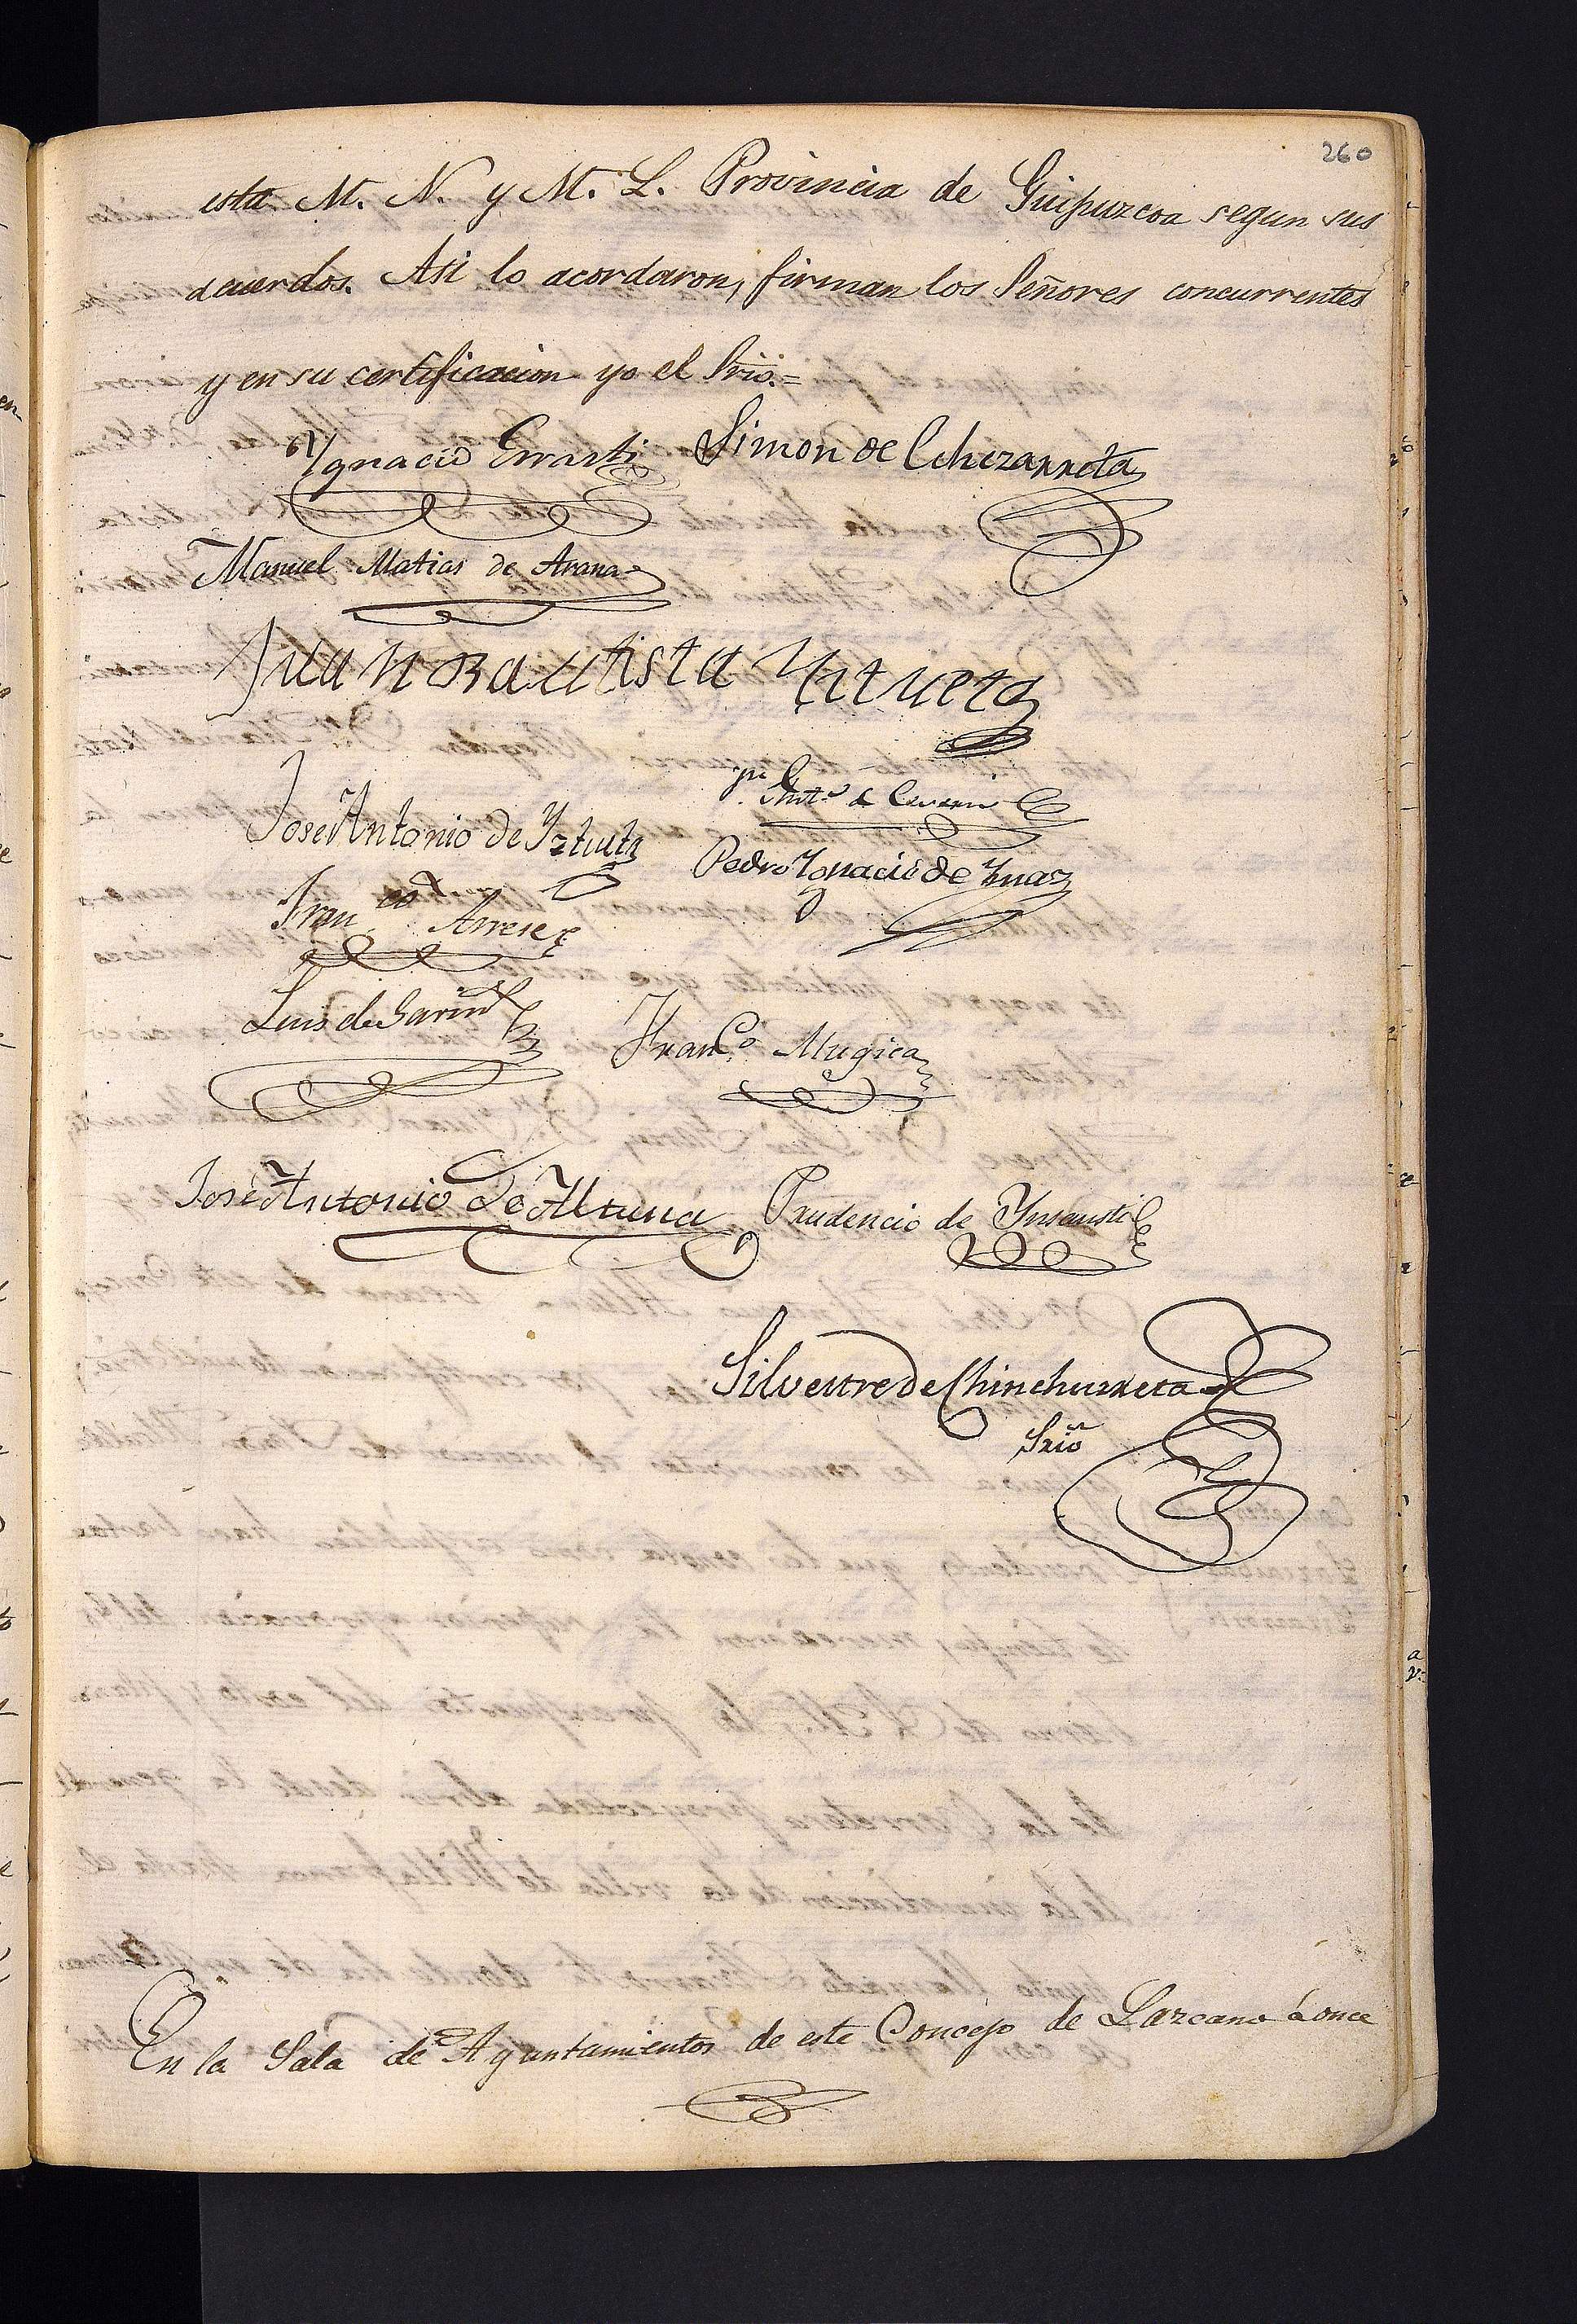 260
esta M. N. y M. L. Provincia de Guipuzcoa segun sus
acuerdos. Asi lo acordaron, firman los Señores concurrentes
y en su certificacion yo el Srio.=
Ygnacio Errasti Simon de Echezarreta
Manuel Matias de Arana
Juan Bautista Yztueta
Jose Antonio de Yztueta
Ant.º de
Pedro Ygnacio de Ynaz
Fran.co Arrese
Luis de Garin
Fran.co Mugica
José Antonio de Altuna Prudencio de Ynsausti
Silvestre de Chinchurreta
Srio
En la Sala de Ayuntamientos de este Concejo de Lazcano á once